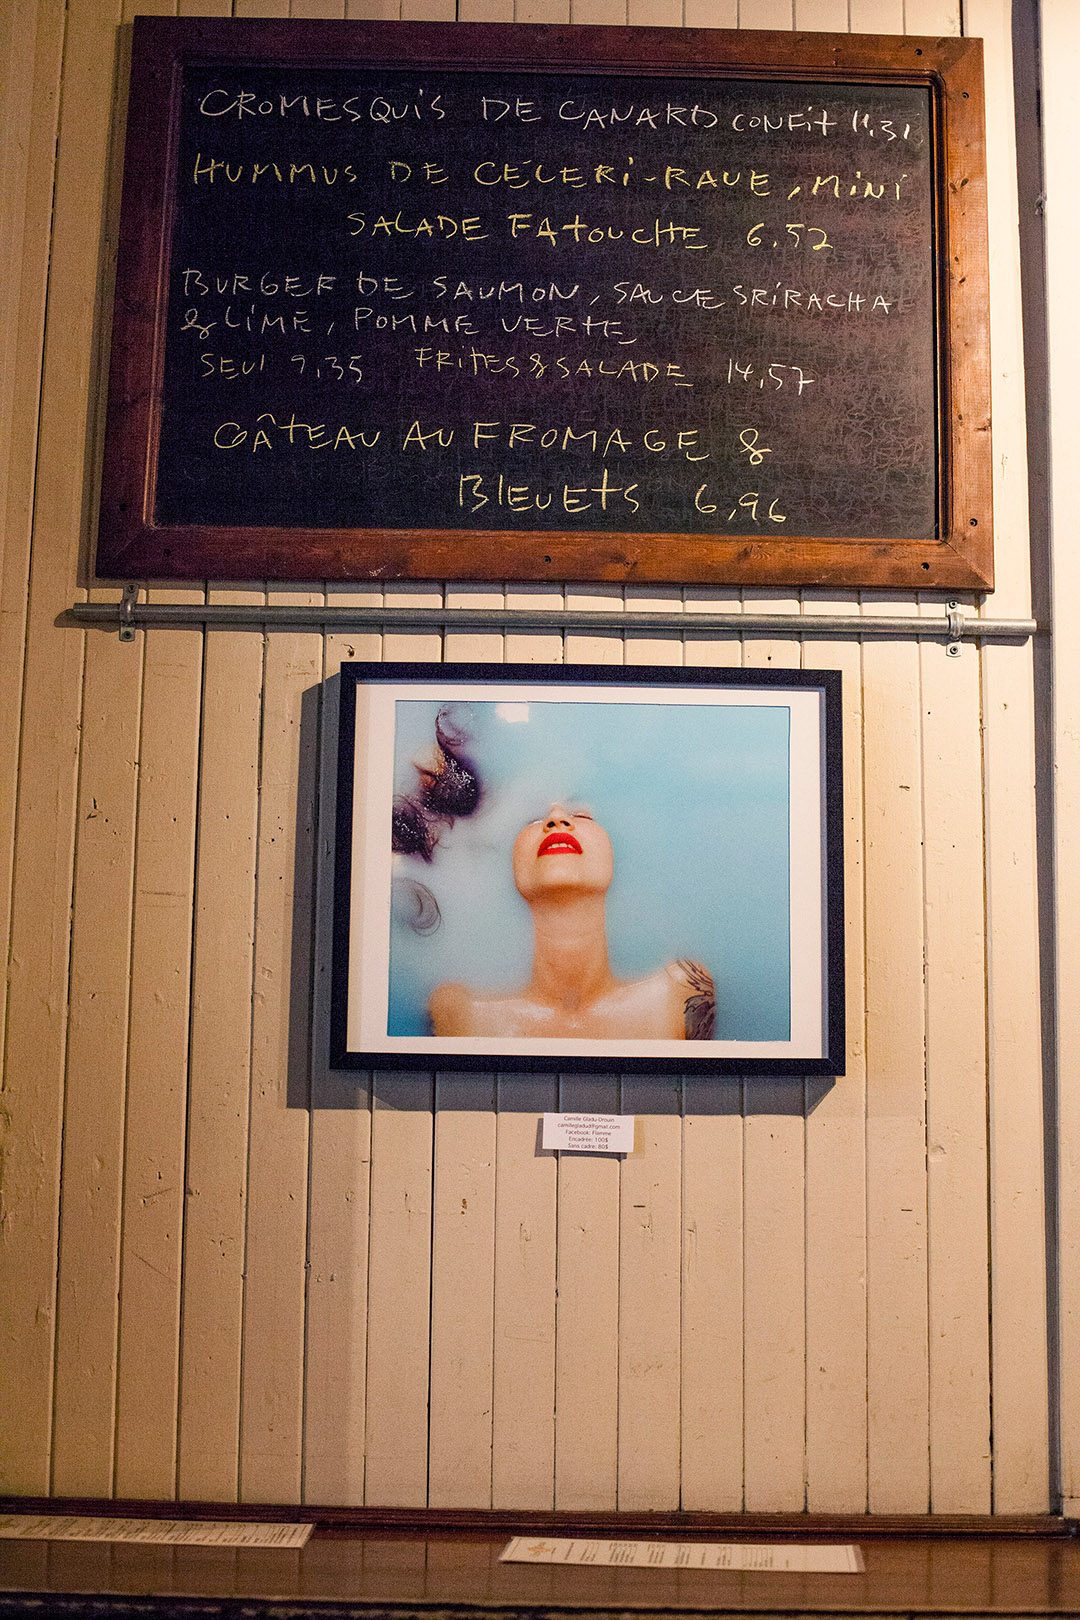 CROMESQUIS DE CANARD CONFIT 11,31
HUMMUS DE CÉLERI-RAVE, MINI
SALADE FATOUCHE 6,52
BURGER DE SAUMON, SAUCE SRIRACHA
& LIME, POMME VERTE
SEUl 9,35 FRITES & SALADE 14,57
GÂTEAU AU FROMAGE &
BlEUEtS 6,96
Camille Gladu-Drouin
camillegladud@gmail.com
Facebook: Flamme
Encadrée: 100$
Sans cadre: 80$